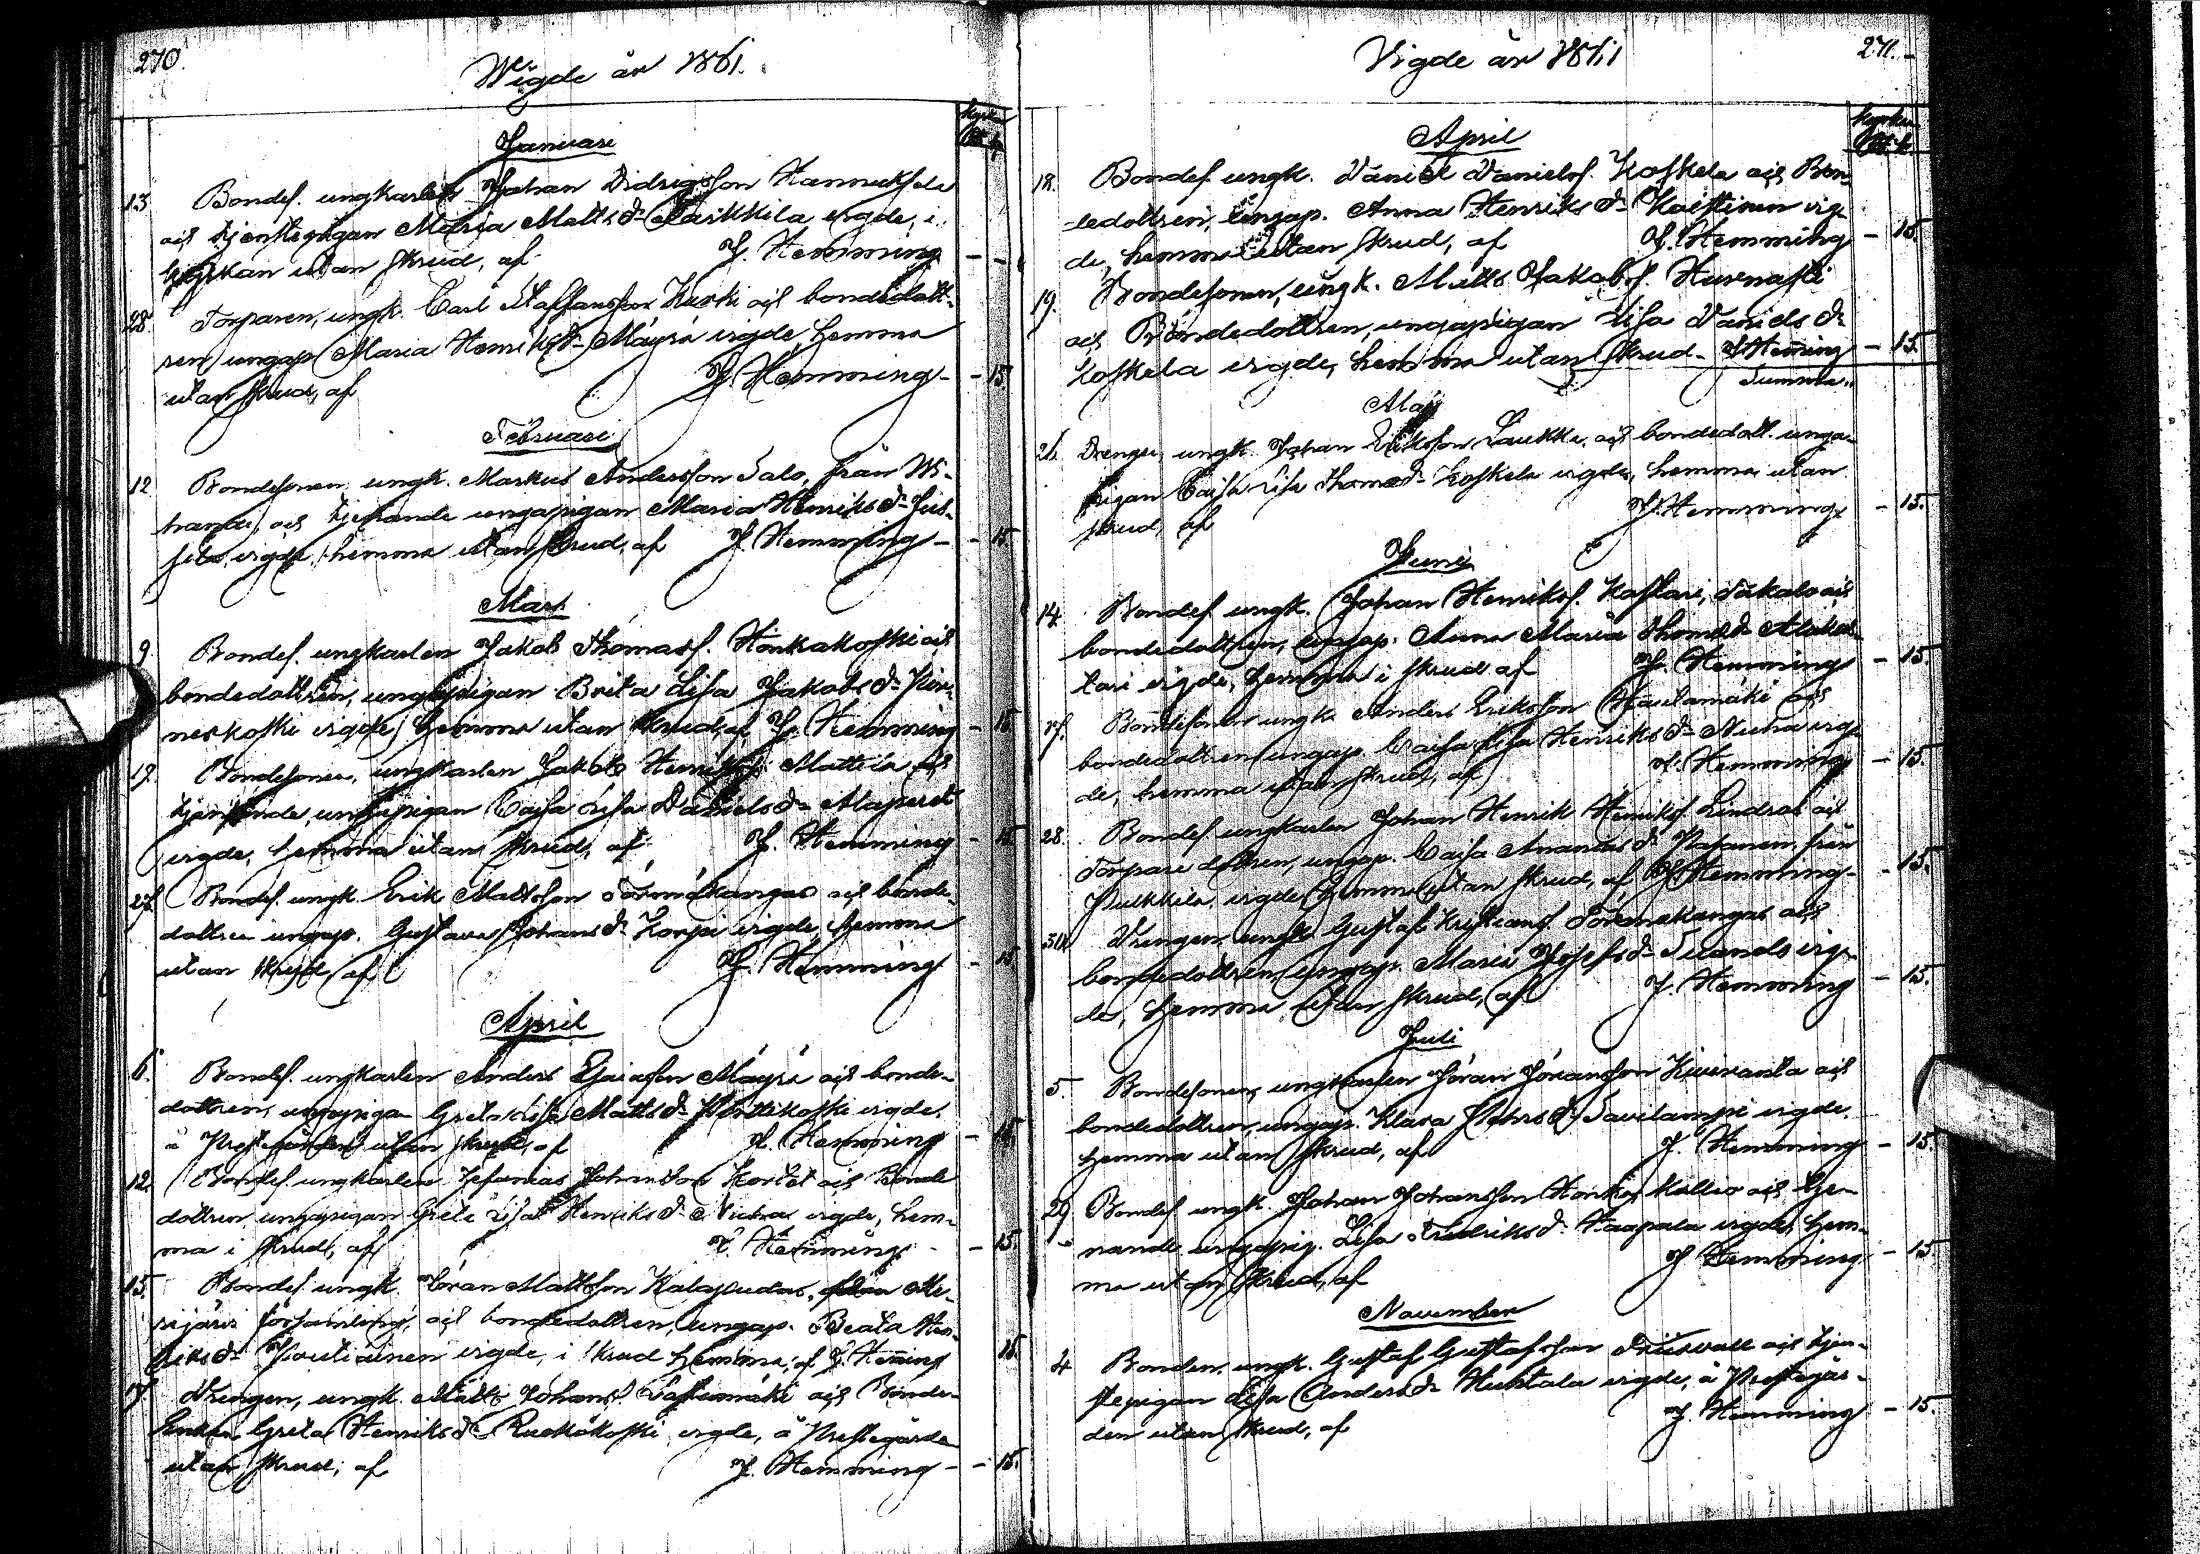 270.
Wigde år 1861.
Kyrkan
Januari
13. Bondes. ungkarlen Johan Didrigsson Hannuksela
och tjenstepigan Maria Matts dr Laikkila vigde, i
kyrkan utan skrud, af J. Hemming - -
28. Torparen, ungk. Carl Staffansson Kurki och bondedott-
ren ungap Maria Henriks dr Mäyrä vigde, hemma
utan skrud, af J. Hemming - - 15.
Februari
12. Bondesonen ungk. Markus Andersson Salo, från Wi-
hande, och tjenande ungapigan Maria Henriks dr Jus-
sila vigde, hemma utan skrud, af J. Hemming - - 15.
Mars
9. Bondes. ungkarlen Jakob Thomass. Honkakoski och
bondedottren, ungapigan Brita Lisa Jakobs dr
neskoski vigde, hemma utan skrud, af J. Hemming - 15.
19. Bondesonen, ungkarlen Jakob Henrikss. Mattila och
tjenande, ungapigan Caisa Lisa Daniels dr
vigde, hemma utan skrud, af J. Hemming - 15.
27. Bondes. ungk. Erik Mattsson Törmäkangas och bonde-
dottren ungap. Gustava Johans dr Korpi vigde, hemma
utan skrud, af J. Hemming - 15.
April
6. Bondes. ungkarlen Anders Esaiasson Mäyrä och bonde-
dottren, ungapigan Greta Lisa Matts dr Pönttikoski vigde,
å Prestegården utan skrud, af J. Hemming - 15.
12. Bondes. ungkarlen Zefanias Johansson och Bonde
dottren ungapigan Greta Lisa Henriks dr vigde, hem-
ma i skrud, af J. Hemming - 15.
15. Bondes. ungk. Göran Mattsson Kalapudas, från Me-
rijärvi församling, och bondedottren, ungap. Beata Hen-
riks dr Pouttiainen vigde, i skrud hemma, af J. Heming 15.
17. Drengen, ungk. Matts Johans. och Bonde-
Enkan Greta Henriks dr Ruokakoski vigde, å Prestegården
utan skrud, af J. Hemming - - 15.
271.
Vigde år 1861
Kyrkan
April
18. Bondes. ungk. Daniel Daniels. Koskela och Bon-
dedottren, ungap. Anna Henriks dr vig-
de, hemma utan skrud, af J. Hemming - 15.
19. Bondesonen, ungk. Matts Jakobs. Hurnasti
och Bondedottren, ungapigan Lisa Daniels dr
Koskela vigde, hemma utan skrud J Heming - 15.
Summa
Maj
26. Drengen ungk. Johan Eriksson Laukka, och bondedott. unga-
pigan Caisa Lisa Thomas dr Koskela vigde, hemma utan
skrud, af J. Hemming - 15.
Junij
14. Bondes. ungk. Johan Henriks. Kastari, Takalo och
bondedottren, ungap. Anna Maria Thomas dr
tari vigde, hemma i skrud af J. Hemming - 15.
17. Bondesonen ungk. Anders Eriksson Hautamäki och
bondedottren ungap. Caisa Lisa Henriks dr vig-
de, hemma utan skrud, af J. Hemming - 15.
28. Bondes. ungkarlen Johan Henrik Henriks. och
Torpare dottren, ungap. Caisa Ananias dr från
Pulkkila vigde hemma utan skrud, af J Hemming - 15.
30. Drengen, ungk. Gustaf Kristians. Törmäkangas och
bondedottren ungap. Maria Josefs dr vig-
de, hemma, utan skrud, af J. Hemming - 15.
Juli
5. Bondesonen, ungkarlen Göran Göransson Kiviranta och
bondedottren, ungap. Klara Petters dr Savilampi vigde,
hemma utan skrud, af J. Hemming - 15.
29 Bondes. ungk. Johan Johansson Honka, och tje-
nande ungapig. Lisa Fredriks dr Haapala vigde, hem-
ma utan skrud, af J Hemming - 15.
November
4 Bonden, ungk. Gustaf Gustafsson och tjen-
stepigan Lisa Anders dr Huhtala vigde, å Prestegår-
den utan skrud, af J. Hemming - 15.